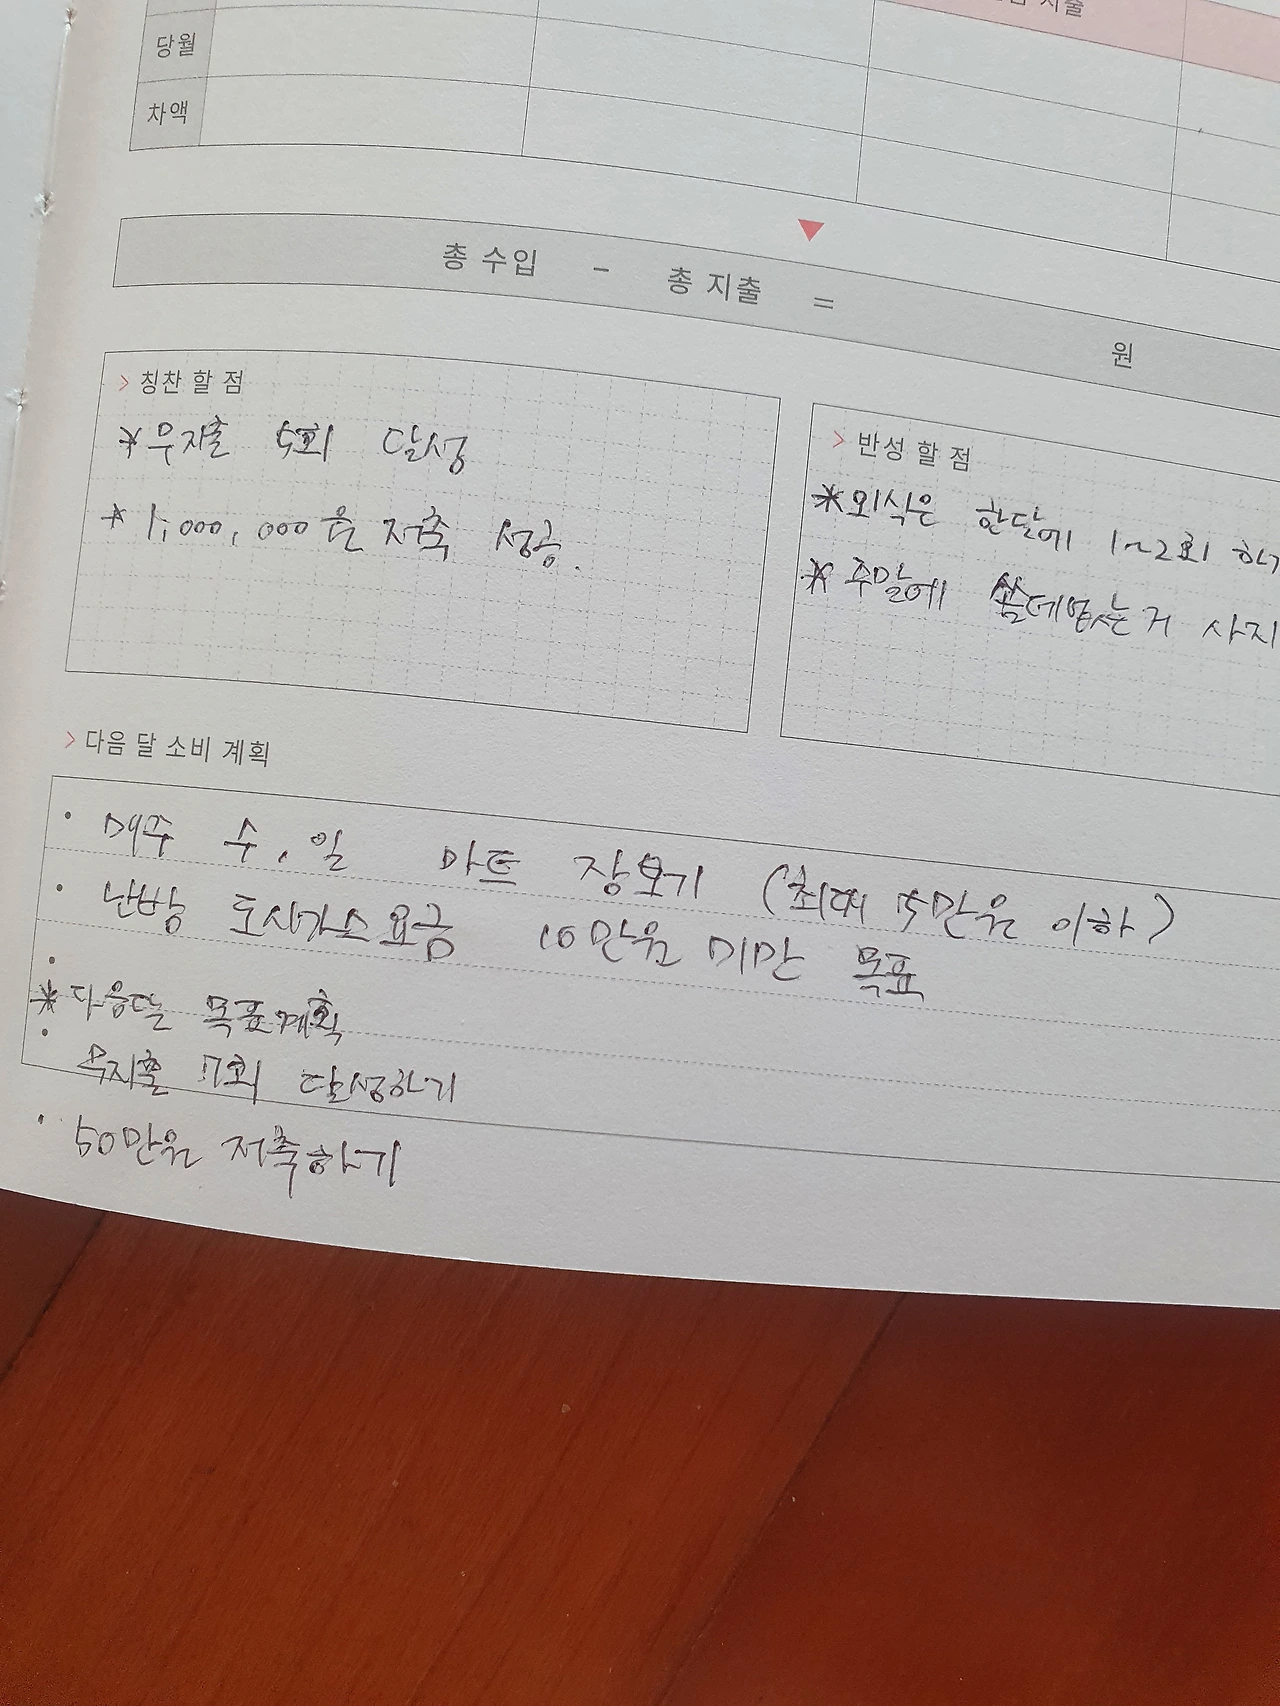 지출
당월
차액
총 수입 - 총 지출 = 원
> 칭찬 할 점
* 무지출 5회 달성
* 1,000,000원 저축 성공.
> 반성 할 점
* 외식은 한달에 1~2회 하기
* 주말에 쓸데없는거 사지
> 다음 달 소비 계획
• 매주 수, 일 마트 장보기 (최대 5만원 이하)
• 난방 도시가스요금 10만원 미만 목표
•
* 다음달 목표계획
• 무지출 7회 달성하기
• 50만원 저축하기